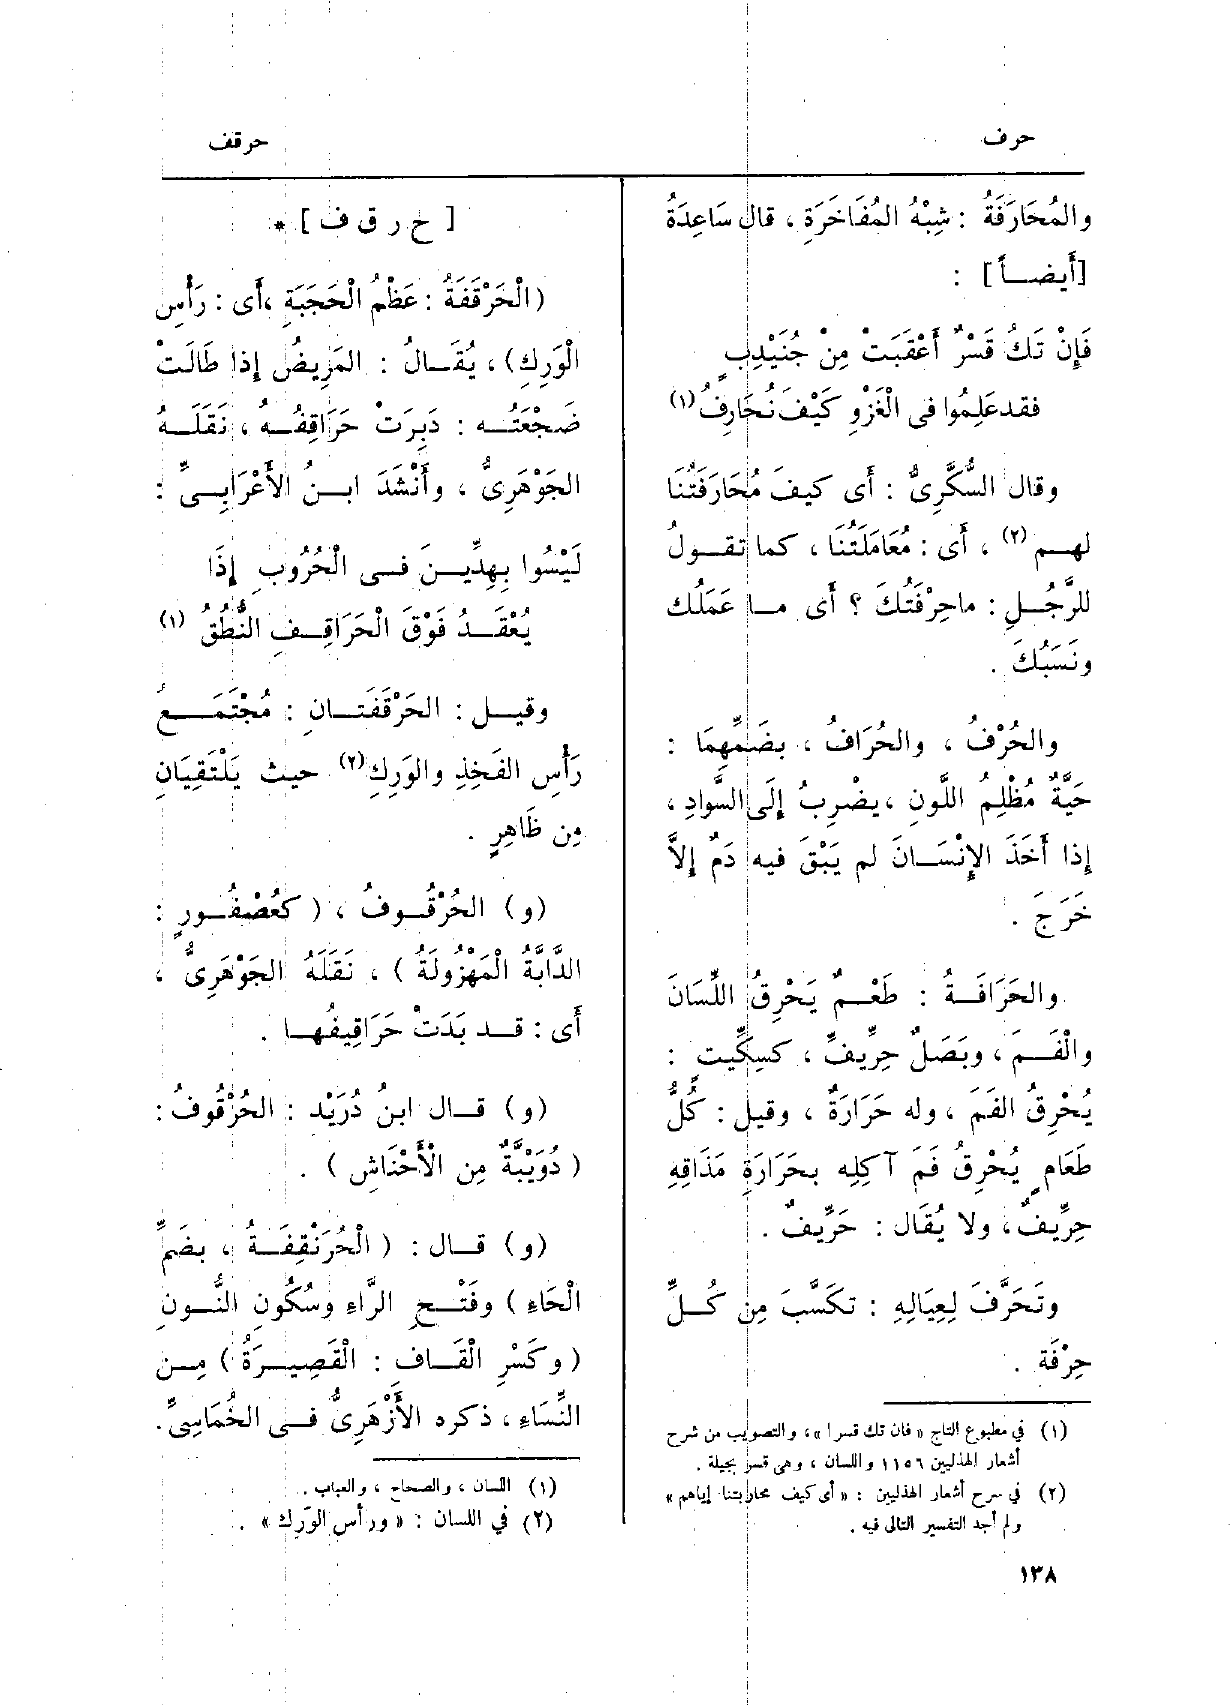 حرف
حرقف
والمُحَارَفَةُ : شِبْهُ المُفَاخَرَةِ ، قال سَاعِدَةُ
[أَيضــاً] :
فَإِنْ تَكُ قَسْرٌ أَعْقَبَتْ مِنْ جُنَيْدِبٍ
فقد عَلِمُوا فى الغَزْوِ كَيْفَ نُحَارِفُ (١)
وقال السُّكَّرِىُّ : أَى كيفَ مُحَارَفَتُنَا
لهــم (٢) ، أَى : مُعَامَلَتُنَا ، كما تقــولُ
للرَّجُــلِ : ماحِرْفَتُكَ ؟ أَى مــا عَمَلُك
ونَسَبُكَ .
والحُرْفُ ، والحُرَافُ ، بضَمِّهِمَا :
حَيَّةٌ مُظْلِمُ اللَّونِ ، يضْرِبُ إِلَى السَّوادِ ،
إِذا أَخَذَ الإِنْسَــانَ لم يَبْقَ فيه دَمٌ إِلاَّ
خَرَجَ .
والحَرَافَــةُ : طَعْــمٌ يَحْرِقُ اللِّسَانَ
والْفَــمَ ، وبَصَلٌ حِرِّيفٌ ، كسِكِّيتٍ :
يُحْرِقُ الفَمَ ، وله حَرَارَةٌ ، وقيل : كُلُّ
طَعَامٍ يُحْرِقُ فَمَ آكِلِه بحَرَارَةِ مَذَاقِهِ
حِرِّيفٌ ، ولا يُقَال : حَرِّيفٌ .
وتَحَرَّفَ لِعِيَالِهِ : تكَسَّبَ مِن كُــلِّ
حِرْفَة .
(١) في مطبوع التاج « فان تك قسرا » ، والتصويب من شرح
أشعار الهذليين ١١٥٦ واللسان ، وهى قسر بجيلة .
(٢) في شرح أشعار الهذليين : « أى كيف محاربتنا إياهم »
ولم أجد التفسير التالى فيه .
[ ح ر ق ف ] *
( الْحَرْقَفَةُ : عَظْمُ الْحَجَبَةِ ، أَى : رَأْس
الْوَرِكِ) ، يُقَــالُ : المَرِيضُ إِذا طَالَتْ
ضَجْعَتُــه : دَبِرَتْ حَرَاقِفُــه ، نَقَلَــهُ
الجَوْهَرِىُّ ، وأَنْشَدَ ابــنُ الأَعْرَابِــىِّ :
لَيْسُوا بِهِدِّيــنَ فــى الْحُرُوبِ إِذَا
يُعْقَــدُ فَوْقَ الْحَرَاقِــفِ النُّطُقُ (١)
وقيــل : الحَرْقَفَتَــانِ : مُجْتَمَــعُ
رَأْسِ الفَخِذِ والوَرِكِ (٢) حيث يَلْتَقِيَانِ
مِن ظَاهِرٍ .
(و) الحُرْقُــوفُ ، ( كعُصْفُــورٍ :
الدَّابَّةُ الْمَهْزُولَةُ ) ، نَقَلَهُ الجَوْهَرِىُّ ،
أَى : قــد بَدَتْ حَرَاقِيفُهــا .
(و) قــال ابنُ دُرَيْد : الحُرْقُوفُ :
( دُوَيْبَّةٌ مِن الْأَحْنَاشِ ) .
(و) قــال : ( الْحُرَنْقِفَــةُ ، بضَمِّ
الْحَاءِ ) وفَتْــحِ الرَّاءِ وسُكُونِ النُّــونِ
( وكَسْرِ الْقَــاف : الْقَصِيــرَةُ ) مِــن
النِّسَاءِ ، ذكره الأَزْهَرِىُّ فــى الخُمَاسِىِّ .
(١) اللسان ، والصحاح ، والعباب .
(٢) في اللسان : « ورأس الوَرِك » .
١٣٨